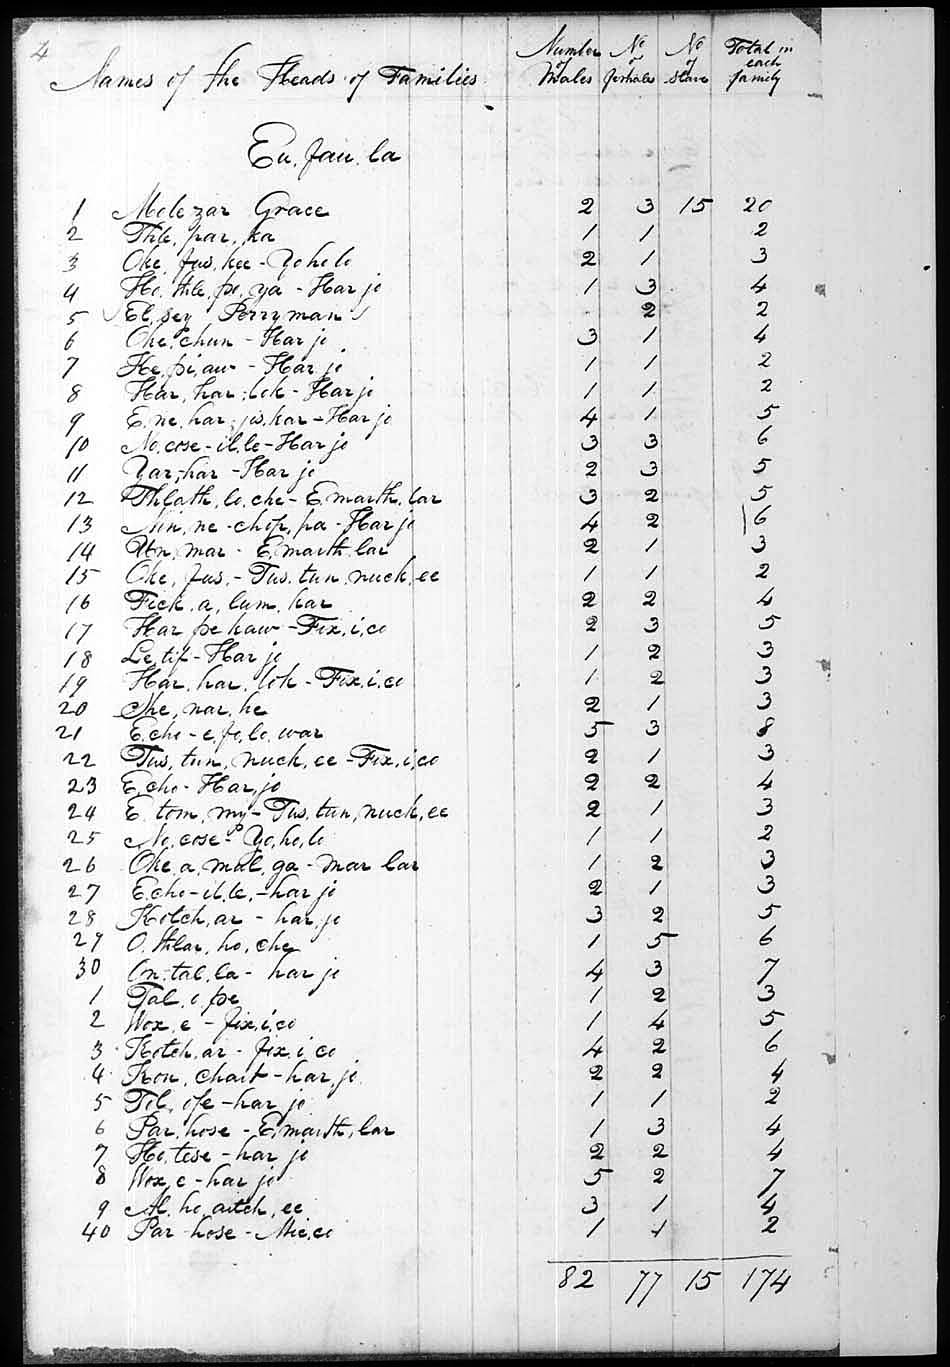 4
Names of the Heads of Families Number of Males No of females No of Slave Total in each family
Eu.fau.la
1 Molezar Grace 2 3 15 20
2 Thle.par.ka 1 1 2
3 Oke.fus.kee - Yo ho lo 2 1 3
4 Ho.thle.po.ya - Har jo 1 3 4
5 El.sey Perryman 2 2
6 Oke.chun - Har jo 3 1 4
7 He.pi.au - Har jo 1 1 2
8 Har.har.lok - Harjo 1 1 2
9 E.ne.har.jis.har - Har jo 4 1 5
10 No.cose - il.le - Har jo 3 3 6
11 Yar.har - Har jo 2 3 5
12 Thlath.lo.che - E.marth.lar 3 2 5
13 Nin.ne - chop.pa - Har jo 4 2 6
14 Un.mar - E.marth.lar 2 1 3
15 Oke.fus. - Tus.tun.nuck.ee 1 1 2
16 Fick.a.lum.har 2 2 4
17 Har pe kaw - Fix.i.co 2 3 5
18 Le.tif - Har jo 1 2 3
19 Har.har.lok - Fix.i.co 1 2 3
20 She.nar.he 2 1 3
21 E.cho - e.fo.lo.war 5 3 8
22 Tus.tun.nuck.ee - Fix.i.co 2 1 3
23 E.cho - Har.jo 2 2 4
24 E.tom.my - Tus.tun.nuck.ee 2 1 3
25 No.cose - Yo.ho.lo 1 1 2
26 Oke.a.mul.ga - mar lar 1 2 3
27 E.cho - il.le. - har jo 2 1 3
28 Kotch.ar - har.jo 3 2 5
29 O.thlar.ho.che 1 5 6
30 On.tal.la - har jo 4 3 7
1 Tal.o.pe 1 2 3
2 Wox.e - fix.i.co 1 4 5
3 Kotch.ar - fix.i.co 4 2 6
4 Kon.chart - har.jo 2 2 4
5 Tol.ofe - har jo 1 1 2
6 Par.hose - E.marth.lar 1 3 4
7 Ho.tose - har jo 2 2 4
8 Wox.e - har jo 5 2 7
9 Al.ho.aitch.ee 3 1 4
40 Par hose - Mic.co 1 1 2
82 77 15 174